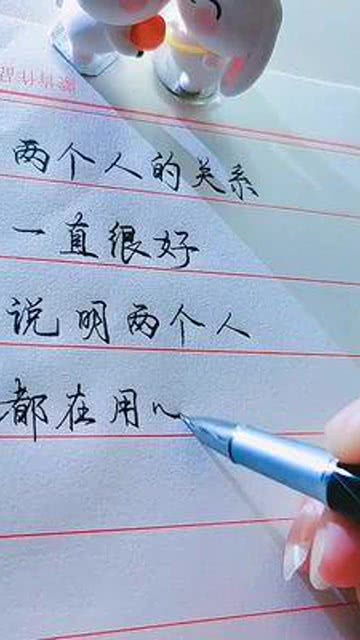 两个人的关系
一直很好
说明两个人
都在用